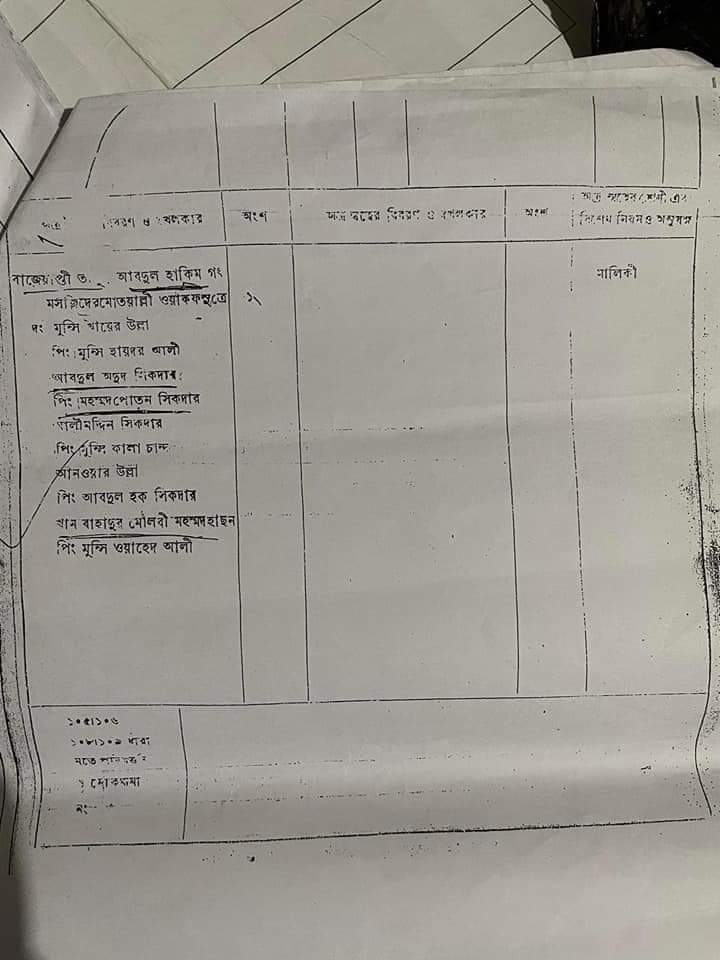 বিবরণ ও দখলকার
অংশ
অত্র স্বত্বের বিবরণ ও দখলকার
অংশ
অত্র স্বত্বের শ্রেণী এবং
বিশেষ নিয়ম ও অনুষঙ্গ
আবদুল হাকিম গং
মালিকী
মসজিদের মোতয়াল্লী ওয়াকফসূত্রে
১৲
দং মুন্সি খায়ের উল্লা
পিং মুন্সি হায়দর আলী
আবদুল অদুদ সিকদার
পিং মহম্মদ পোতন সিকদার
সিকদার
পিং মুন্সি কালা চান্দ
আনওয়ার উল্লা
পিং আবদুল হক সিকদার
খান বাহাদুর মৌলবী মহম্মদ হাছন
পিং মুন্সি ওয়াহেদ আলী
১০৫।১০৬
১০৮।১০৯ ধারা
মতে
মোকদ্দমা
নং